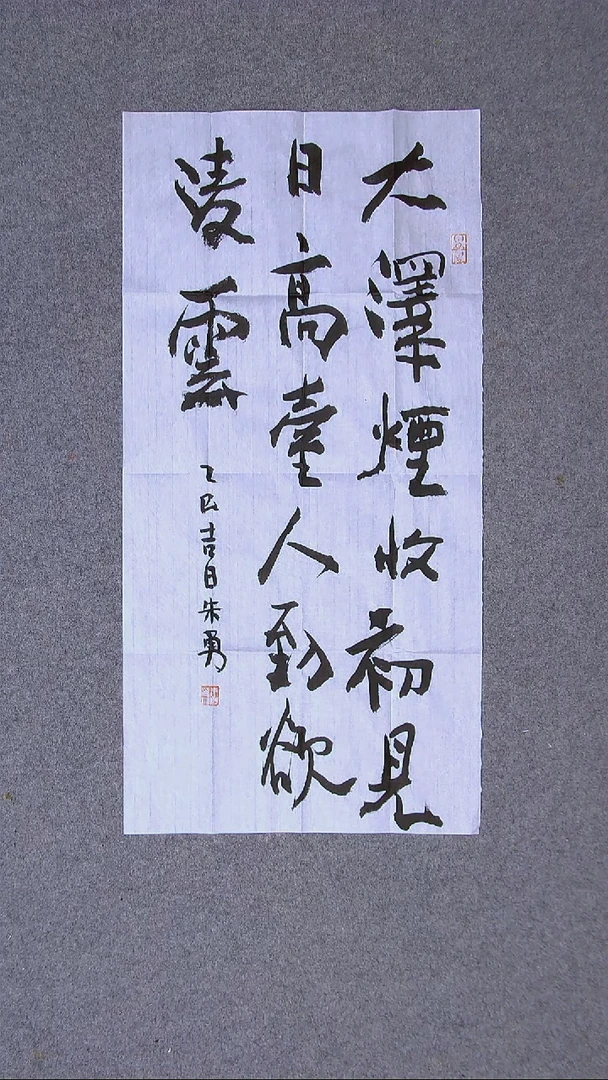 大澤煙收初見
日高臺人到欲
淩雲
乙巳吉日朱勇